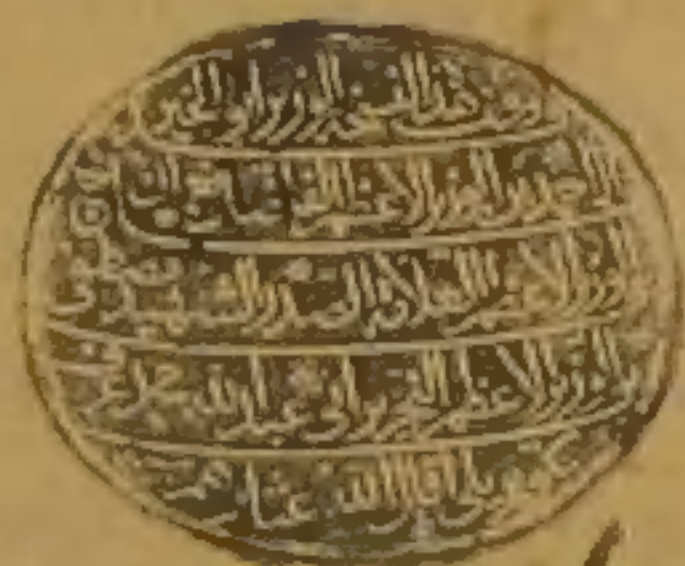 وقف هذه النسخة الوزير ابو الخير
احمد بن الوزير الاعظم نعمان بن
الوزير الاعظم العلامة الصدر الشهيد مصطفى
بن الوزير الاعظم النحرير ابي عبد الله محمد عرف
بكوپريلي اقال الله عثارهم